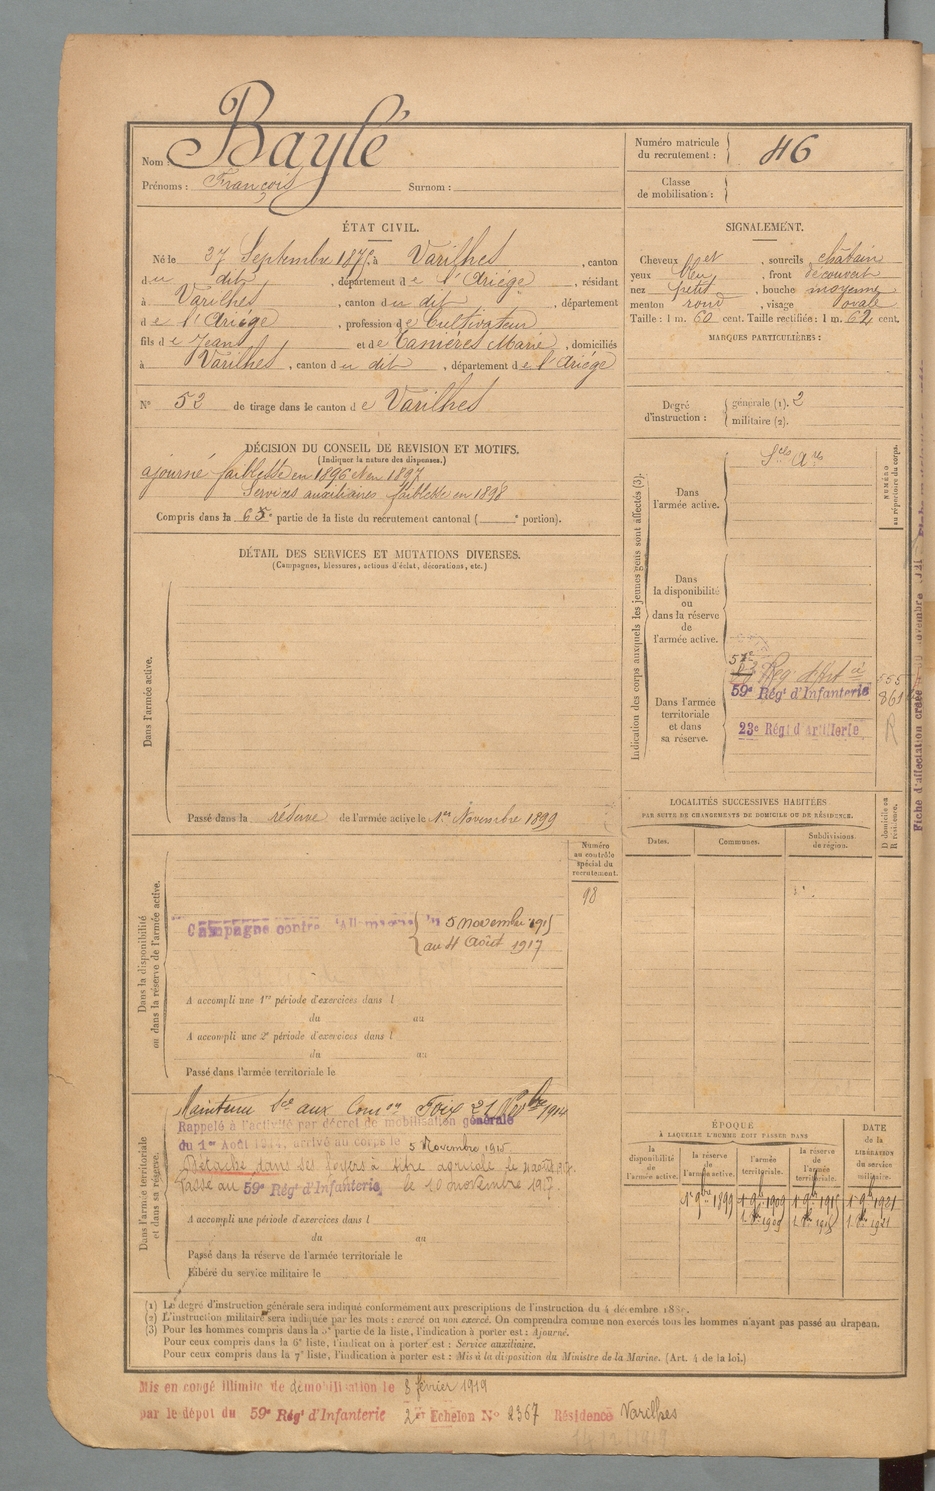 Nom : Baylé
Prénoms : François Surnom :
Numéro matricule du recrutement : 46
Classe de mobilisation :
ÉTAT CIVIL.
Né le 27 Septembre 1875, à Varilhes, canton
du dit, département de l'Ariège, résidant
à Varilhes, canton du dit, département
de l'Ariège, profession de Cultivateur
fils de Jean et de Canières Marie, domiciliés
à Varilhes, canton du dit, département de l'Ariège
N° 52 de tirage dans le canton de Varilhes
SIGNALEMENT.
Cheveux et, sourcils châtain
yeux bleu, front découvert
nez petit, bouche moyenne
menton rond, visage ovale
Taille : 1 m. 60 cent. Taille rectifiée : 1 m. 62 cent.
MARQUES PARTICULIÈRES :
Degré d'instruction : générale (1). 2
militaire (2).
DÉCISION DU CONSEIL DE REVISION ET MOTIFS.
(Indiquer la nature des dispenses.)
ajourné faiblesse en 1896 et en 1897
Services auxiliaires faiblesse en 1898
Compris dans la 6e partie de la liste du recrutement cantonal ( e portion).
DÉTAIL DES SERVICES ET MUTATIONS DIVERSES.
(Campagnes, blessures, actions d'éclat, décorations, etc.)
Dans l'armée active.
Passé dans la réserve de l'armée active le 1er Novembre 1899
Indication des corps auxquels les jeunes gens sont affectés (3).
NUMÉRO au répertoire du corps.
Dans l'armée active.
Sces Ares
Dans la disponibilité ou dans la réserve de l'armée active.
Dans l'armée territoriale et dans sa réserve.
57e
Rég. d'Art ie
59e Régt d'Infanterie
23e Régt d'Artillerie
R
Fiche d'affectation créée
LOCALITÉS SUCCESSIVES HABITÉES
PAR SUITE DE CHANGEMENTS DE DOMICILE OU DE RÉSIDENCE.
Dates. Communes. Subdivisions de région.
D domicile ou R résidence.
Dans la disponibilité ou dans la réserve de l'armée active.
Numéro au contrôle spécial du recrutement.
98
Campagne contre l'Allemagne du 5 novembre 1915
au 4 Août 1917
A accompli une 1re période d'exercices dans l
du au
A accompli une 2e période d'exercices dans l
du au
Passé dans l'armée territoriale le
Dans l'armée territoriale et dans sa réserve.
Maintenu Sce aux Comon Foix 21 Novbre 1914
Rappelé à l'activité par décret de mobilisation générale
du 1er Août 1914, arrivé au corps le 5 Novembre 1915
Détaché dans ses foyers à titre agricole le 4 août 1917.
Passé au 59e Régt d'Infanterie le 10 novembre 1917.
A accompli une période d'exercices dans l
du au
Passé dans la réserve de l'armée territoriale le
Libéré du service militaire le
ÉPOQUE
À LAQUELLE L'HOMME DOIT PASSER DANS
DATE de la LIBÉRATION du service militaire.
la disponibilité de l'armée active. la réserve de l'armée active. l'armée territoriale. la réserve de l'armée territoriale.
1er 9bre 1899 1er 9b 1909 1er 9b 1915 1er 9b 1921
(1) Le degré d'instruction générale sera indiqué conformément aux prescriptions de l'instruction du 4 décembre 188
(2) L'instruction militaire sera indiquée par les mots : exercé ou non exercé. On comprendra comme non exercés tous les hommes n'ayant pas passé au drapeau.
(3) Pour les hommes compris dans la 5e partie de la liste, l'indication à porter est : Ajourné.
Pour ceux compris dans la 6e liste, l'indication à porter est : Service auxiliaire.
Pour ceux compris dans la 7e liste, l'indication à porter est : Mis à la disposition du Ministre de la Marine. (Art. 4 de la loi.)
Mis en congé illimité de démobilisation le 8 février 1919
par le dépôt du 59e Régt d'Infanterie 2e Echelon N° 2367 Résidence Varilhes